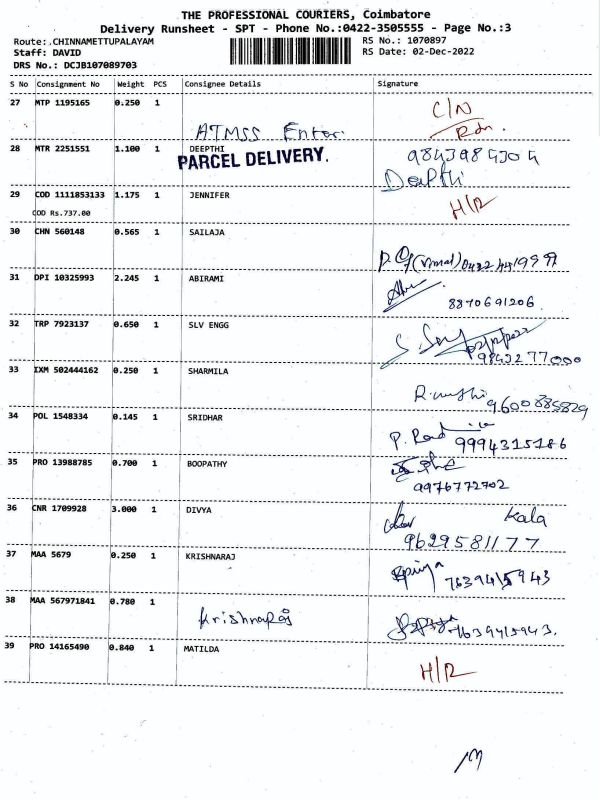 THE PROFESSIONAL COURIERS, Coimbatore
Delivery Runsheet - SPT - Phone No.:0422-3505555 - Page No.:3
Route:.CHINNAMETTUPALAYAM RS No.: 1070897
Staff: DAVID RS Date: 02-Dec-2022
DRS No.: DCJB107089703
S No Consignment No Weight PCS Consignee Details Signature
27 MTP 1195165 0.250 1 ATMSS Enter. C/N
28 MTR 2251551 1.100 1 DEEPTHI 9843989304
PARCEL DELIVERY. Deepthi
29 COD 1111853133 1.175 1 JENNIFER H/R
COD Rs.737.00
30 CHN 560148 0.565 1 SAILAJA
31 DPI 10325993 2.245 1 ABIRAMI
8870691206
32 TRP 7923137 0.650 1 SLV ENGG
9843277000
33 IXM 502444162 0.250 1 SHARMILA
9600885829
34 POL 1548334 0.145 1 SRIDHAR
9994315186
35 PRO 13988785 0.700 1 BOOPATHY
9976772702
36 CNR 1709928 3.000 1 DIVYA Kala
9629581177
37 MAA 5679 0.250 1 KRISHNARAJ
7639415943
38 MAA 567971841 0.780 1 Krishnaraj 7639415943.
39 PRO 14165490 0.840 1 MATILDA H/R